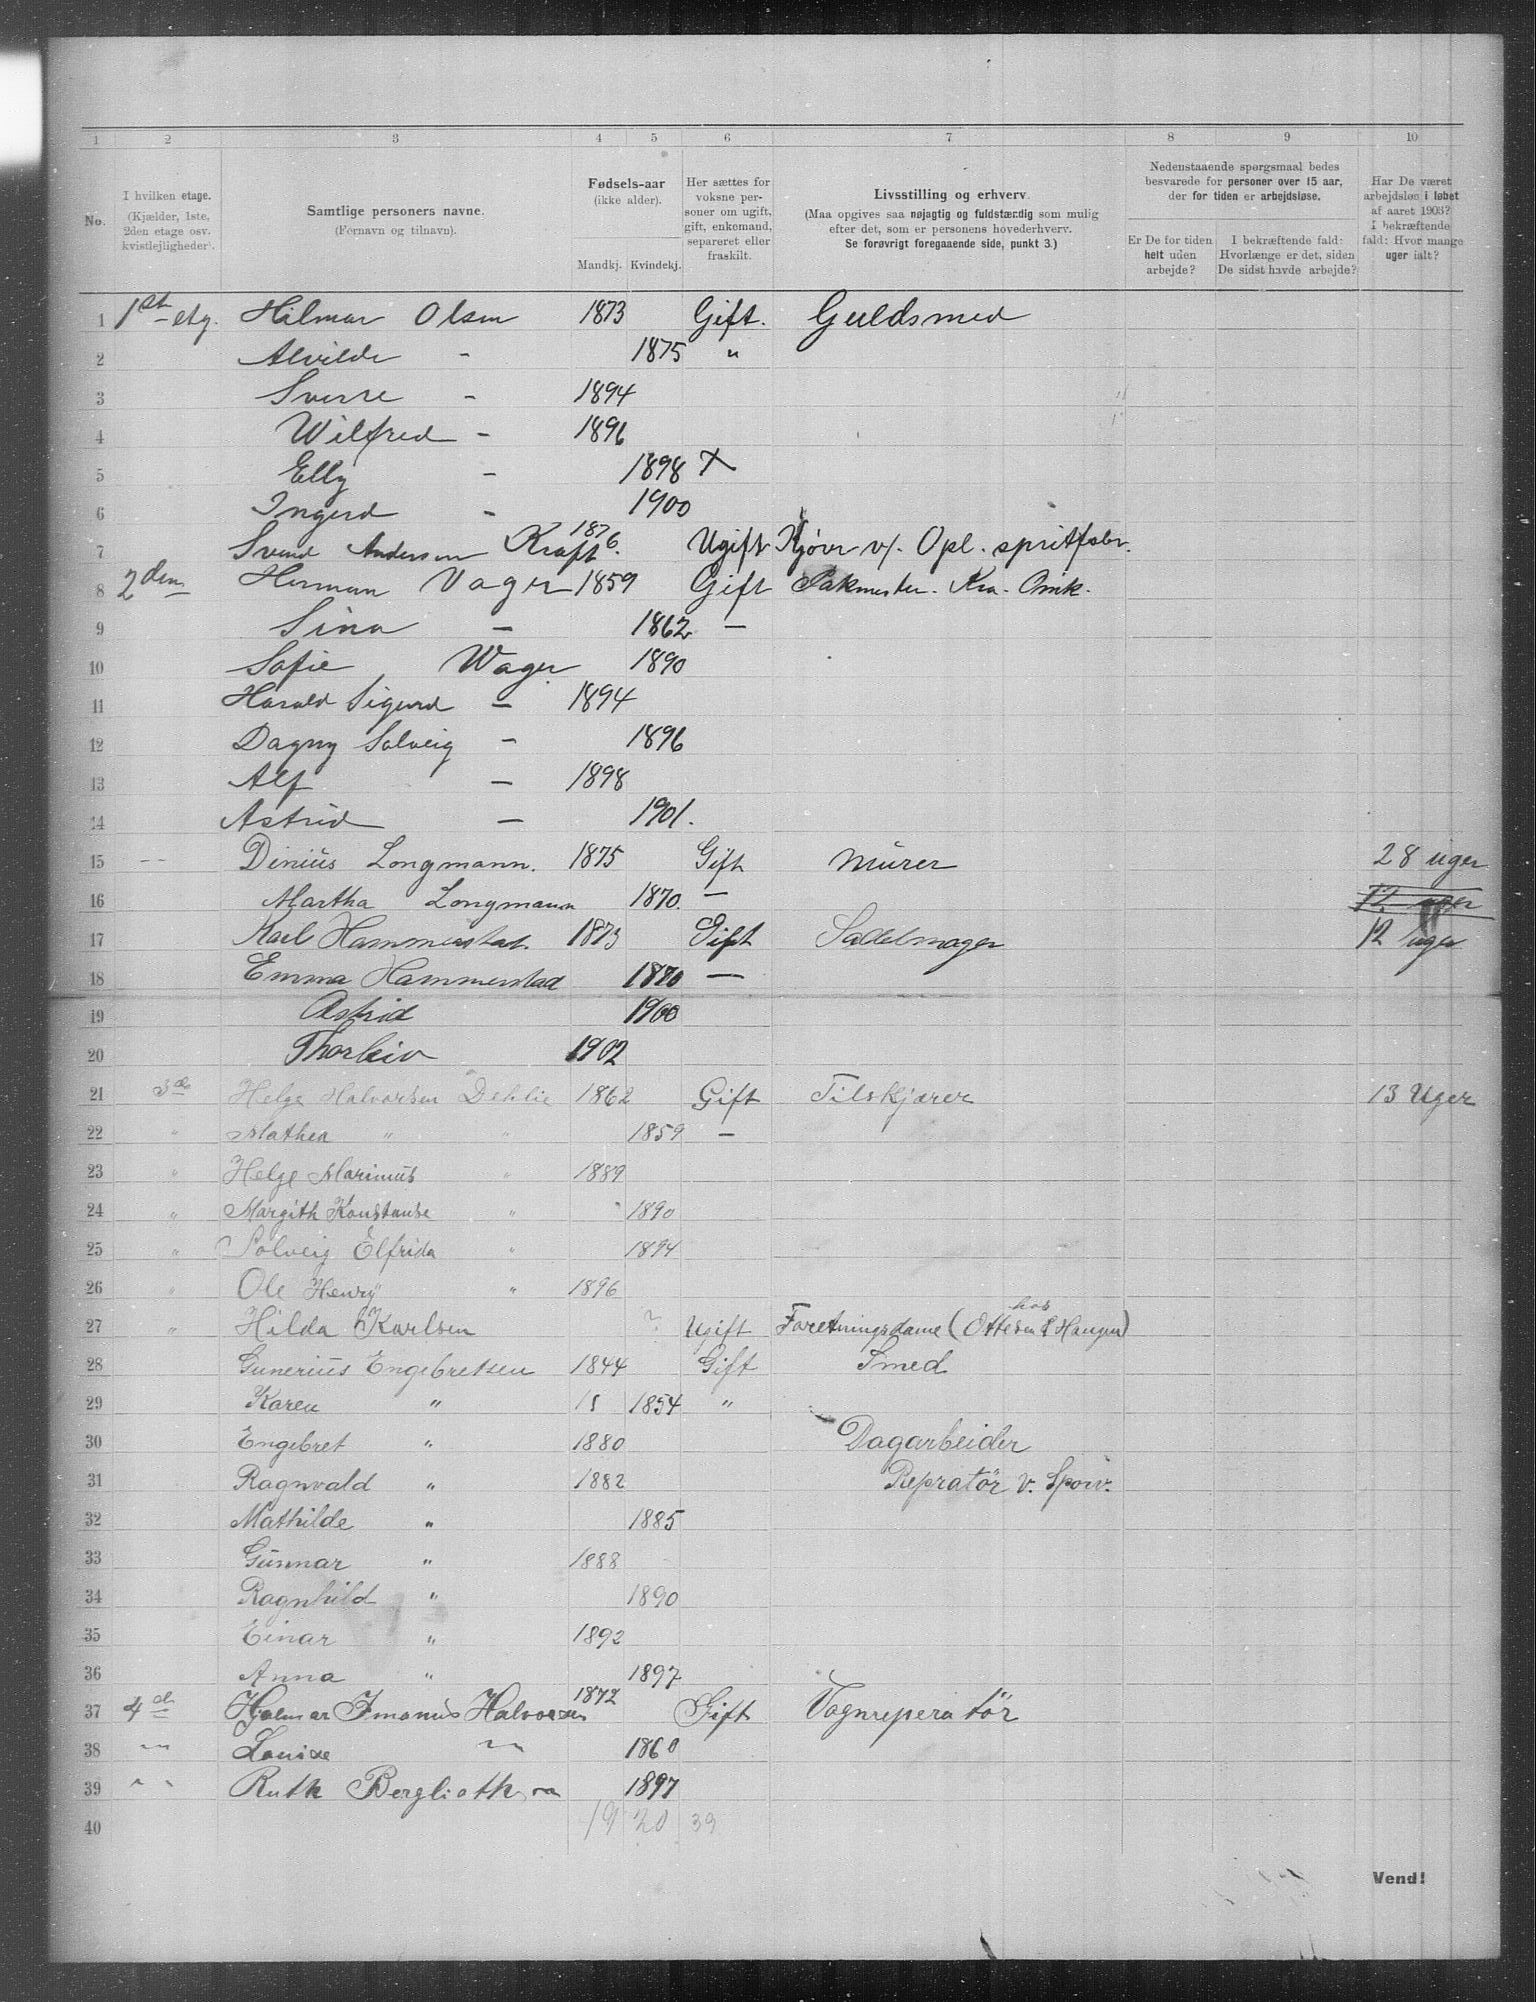 1 2 3 4 5 6 7 8 9 10
No. I hvilken etage. (Kjælder, 1ste, 2den etage osv. kvistlejligheder). Samtlige personers navne. (Fornavn og tilnavn). Fødsels-aar (ikke alder). Mandkj. Kvindekj. Her sættes for voksne personer om ugift, gift, enkemand, separeret eller fraskilt. Livsstilling og erhverv. (Maa opgives saa nøjagtig og fuldstændig som mulig efter det, som er personens hovederhverv. Se forøvrigt foregaaende side, punkt 3.) Nedenstaaende spørgsmaal bedes besvarede for personer over 15 aar, der for tiden er arbejdsløse. Er De for tiden helt uden arbejde? I bekræftende fald: Hvorlænge er det, siden De sidst havde arbejde? Har De været arbejdsløs i løbet af aaret 1903? I bekræftende fald: Hvor mange uger ialt?
1 1st etg. Hilmar Olsen 1873 Gift. Guldsmed
2 Alvilde - 1875 "
3 Sverre - 1894
4 Wilfred - 1896
5 Elly - 1898 X
6 Ingerd - 1900
7 Svend Andersen Kraft. 1876 Ugift Kjører v/. Opl. spritfabr.
8 2den Herman Vager 1859 Gift Pakmester. Kra.
9 Sina - 1862 -
10 Sofie Wager 1890
11 Harald Sigurd - 1894
12 Dagny Solveig - 1896
13 Alf - 1898
14 Astrid - 1901.
15 -- Dinius Longmann. 1875 Gift Murer 28 uger
16 Martha Longmann 1870. - 12 uger
17 Karl Hammerstad 1873 Gift Sadelmager 12 uger
18 Emma Hammerstad 1870 -
19 Astrid 1900
20 Thorleiv 1902
21 3de Helge Halvorsen Dehlie 1862 Gift Tilskjærer 13 Uger
22 " Mathea " " 1859 -
23 " Helge Marinius " 1889
24 " Margith Konstanse " 1890
25 " Solveig Elfrida " 1894
26 " Ole Henry " 1896
27 " Hilda Karlsen ? Ugift Foretningsdame (hos Ottesen & Haugen)
28 Gunerius Engebretsen 1844 Gift Smed
29 Karen " 1854 "
30 Engebret " 1880 Dagarbeider
31 Ragnvald " 1882 Repratør v. Sporv.
32 Mathilde " 1885
33 Gunnar " 1888
34 Ragnhild " 1890
35 Einar " 1892
36 Anna " 1897
37 4d Hjalmar Imanus Halvorsen 1872 Gift Vognreperatør
38 -"- Louise -"- 1860
39 " " Ruth Berglioth -"- 1897
40 19 20 39
Vend!